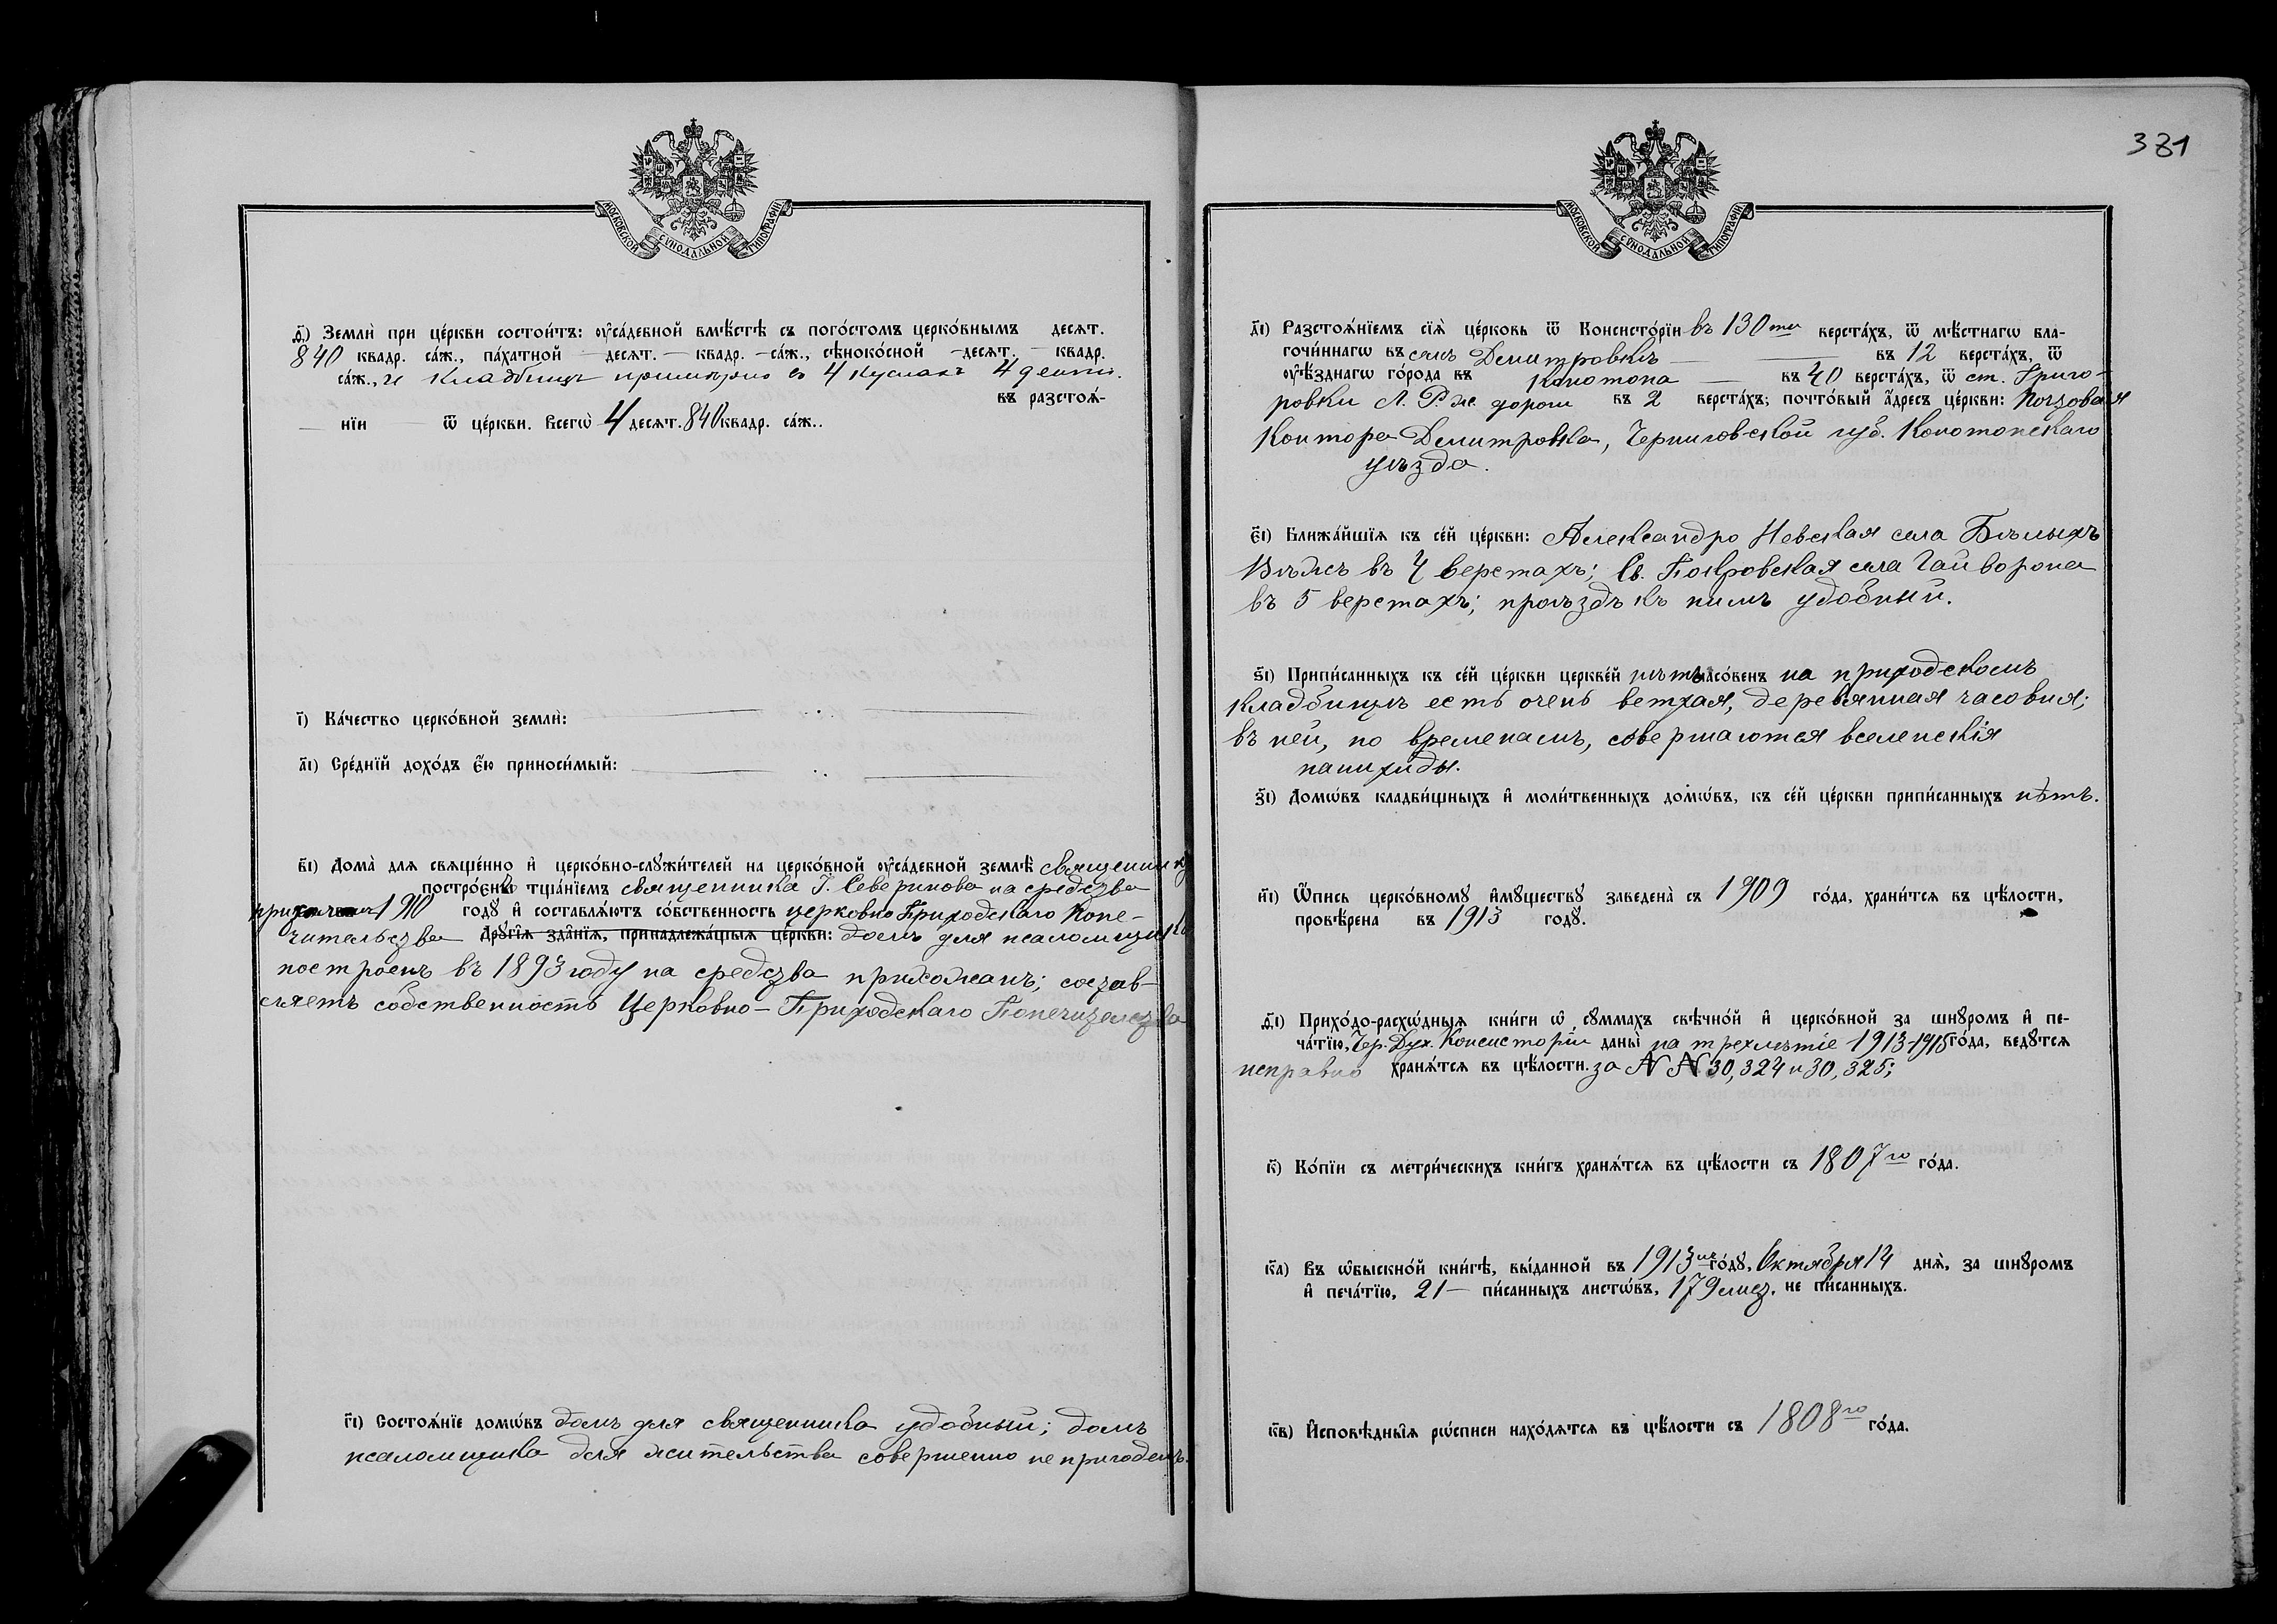 МОСКОВСКОЙ СѴНОДАЛЬНОЙ ТИПОГРАФІИ
ѳ҃) Землѝ при це́ркви состои́тъ: ᲂу҆са́дебной вмѣ́стѣ съ пого́стомъ церко́внымъ десѧт.
840 квадр. са́ж., па́хатной — десѧт. — квадр. — са́ж., сѣноко́сной — десѧт. — квадр.
са́ж., и кладбищѣ примѣрно въ 4 кускахъ 4 десят.
въ разстоѧ́-
— нїи — ѿ це́ркви. Всегѡ̀ 4 десѧт. 840 квадр. са́ж..
і҃) Ка́чество церко́вной землѝ: — „ —
а҃і) Сре́днїй дохо́дъ є҆́ю приноси́мый: — „ —
в҃і) Дома̀ длѧ свѧще́нно и҆ церко́вно-слꙋжи́телей на церко́вной ᲂу҆са́дебной землѣ̀ священнику
постро́єнъ тща́нїемъ священника І. Северинова на средства
прихожанъ 1910 годꙋ̀ и҆ составлѧ́ютъ со́бственность церковно Приходскаго Попе-
чительства Дрꙋгі̑ѧ зда̑нїѧ, принадлежа́щыѧ це́ркви: домъ для псаломщика
построенъ въ 1893 году на средства прихожанъ; состав-
ляетъ собственность Церковно-Приходскаго Попечительства
г҃і) Состоѧ́нїе домѡ́въ домъ для священника удобный; домъ
псаломщика для жительства совершенно не пригоденъ.
381
МОСКОВСКОЙ СѴНОДАЛЬНОЙ ТИПОГРАФІИ
д҃і) Разстоѧ́нїемъ сїѧ̀ це́рковь ѿ Консисто́рїи въ 130 ти верста́хъ, ѿ мѣ́стнагѡ бла-
гочи́ннагѡ въ селѣ Дмитровкѣ — въ 12 верста́хъ, ѿ
ᲂу҆ѣ́зднагѡ го́рода въ Конотопа — въ 40 верста́хъ, ѿ ст. Григо-
ровки Л. Р. ж. дороги въ 2 верста́хъ; почто́вый а҆́дресъ це́ркви: Почтовая
Контора Дмитровка, Черниговской губ. Конотопскаго
уѣзда.
є҃і) Ближа́йшїѧ къ се́й це́ркви: Александро Невская села Бѣлыхъ
Вѣжъ въ 4 верстахъ; Св. Покровская села Гайворона
въ 5 верстахъ; проѣздъ къ нимъ удобный.
ѕ҃і) Припи́санныхъ къ се́й це́ркви церкве́й нѣтъ часо́венъ на приходскомъ
кладбищѣ есть очень ветхая, деревянная часовня;
въ ней, по временамъ, совершаются вселенскія
панихиды.
з҃і) Домѡ́въ кладби́щныхъ и҆ моли́твенныхъ домѡ́въ, къ се́й це́ркви припи́санныхъ нѣтъ.
и҃і) Ѻ҆́пись церко́вномꙋ и҆мꙋ́ществꙋ заведена̀ съ 1909 го́да, храни́тсѧ въ цѣ́лости,
провѣ́рена въ 1913 годꙋ̀.
ѳ҃і) Прихо́до-расхѡ́дныѧ кни́ги ѡ҆ сꙋ́ммахъ свѣчно́й и҆ церко́вной за шнꙋро́мъ и҆ пе-
ча́тїю, Чер. Дух. Консисторіи даны̀ на трехлѣтіе 1913-1915 го́да, ведꙋ́тсѧ
исправно хранѧ́тсѧ въ цѣ́лости. за N N 30,324 и 30,325;
к҃) Ко́пїи съ метри́ческихъ кни́гъ хранѧ́тсѧ въ цѣ́лости съ 1807 го го́да.
к҃а) Въ ѡ҆быскно́й кни́гѣ, вы́данной въ 1913 мъ го́дꙋ, Октября 14 днѧ̀, за шнꙋро́мъ
и҆ печа́тїю, 21 — пи́санныхъ листѡ́въ, 179 лист. не пи́санныхъ.
к҃в) И҆сповѣ̑дныѧ рѡ́списи нахо́дѧтсѧ въ цѣ́лости съ 1808 го го́да.